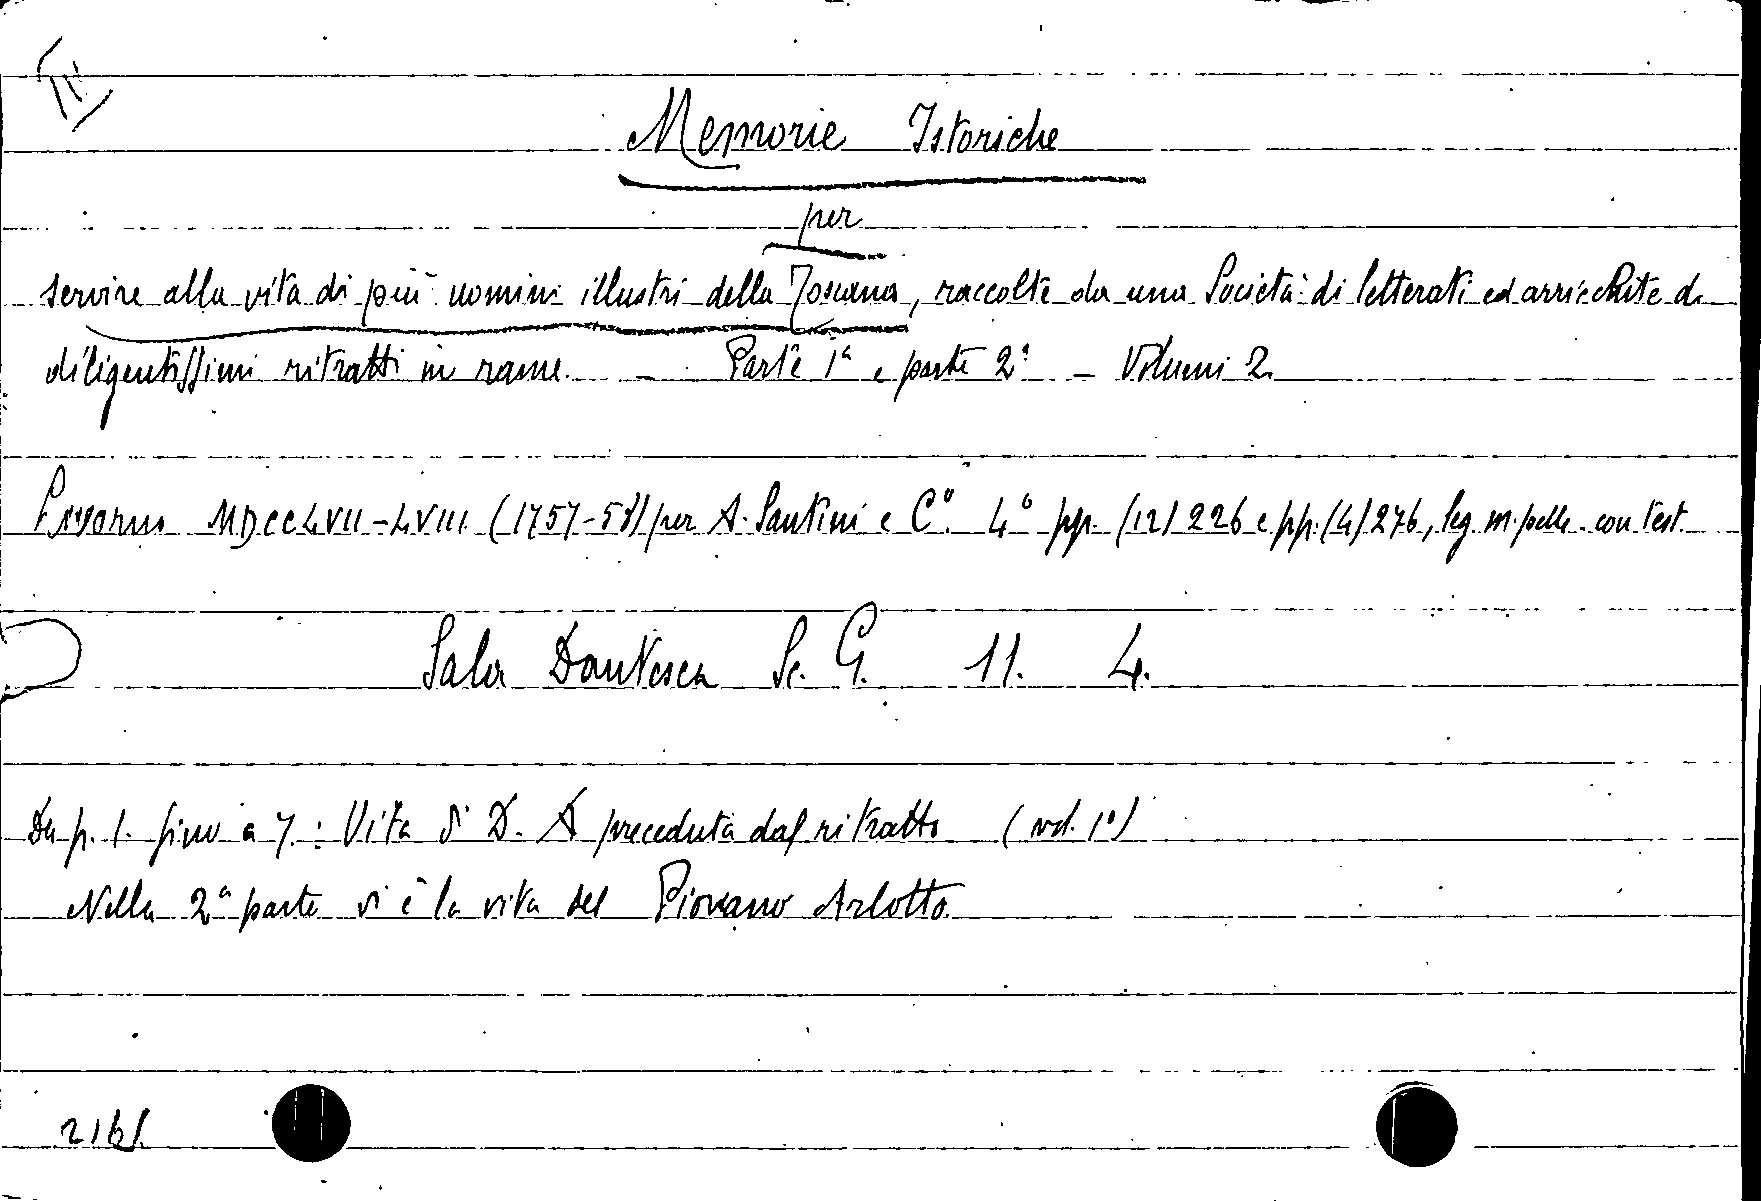 Memorie Istoriche
per
servire alla vita di più uomini illustri della Toscana, raccolte da una Società di letterati ed arricchite di
diligentissimi ritratti in rame. - Parte 1ª e parte 2ª - Volumi 2.
Livorno MDCCLVII-LVIII (1757-58) per A. Santini e Cº. 4º pp. (12) 226 e pp. (4) 276, leg. m. pelle con test.
Sala Dantesca Sc. G. 11. 4.
Da p. 1. fino a 7: Vita di D. A preceduta dal ritratto (vol. 1º)
Nella 2ª parte vi è la vita del Piovano Arlotto